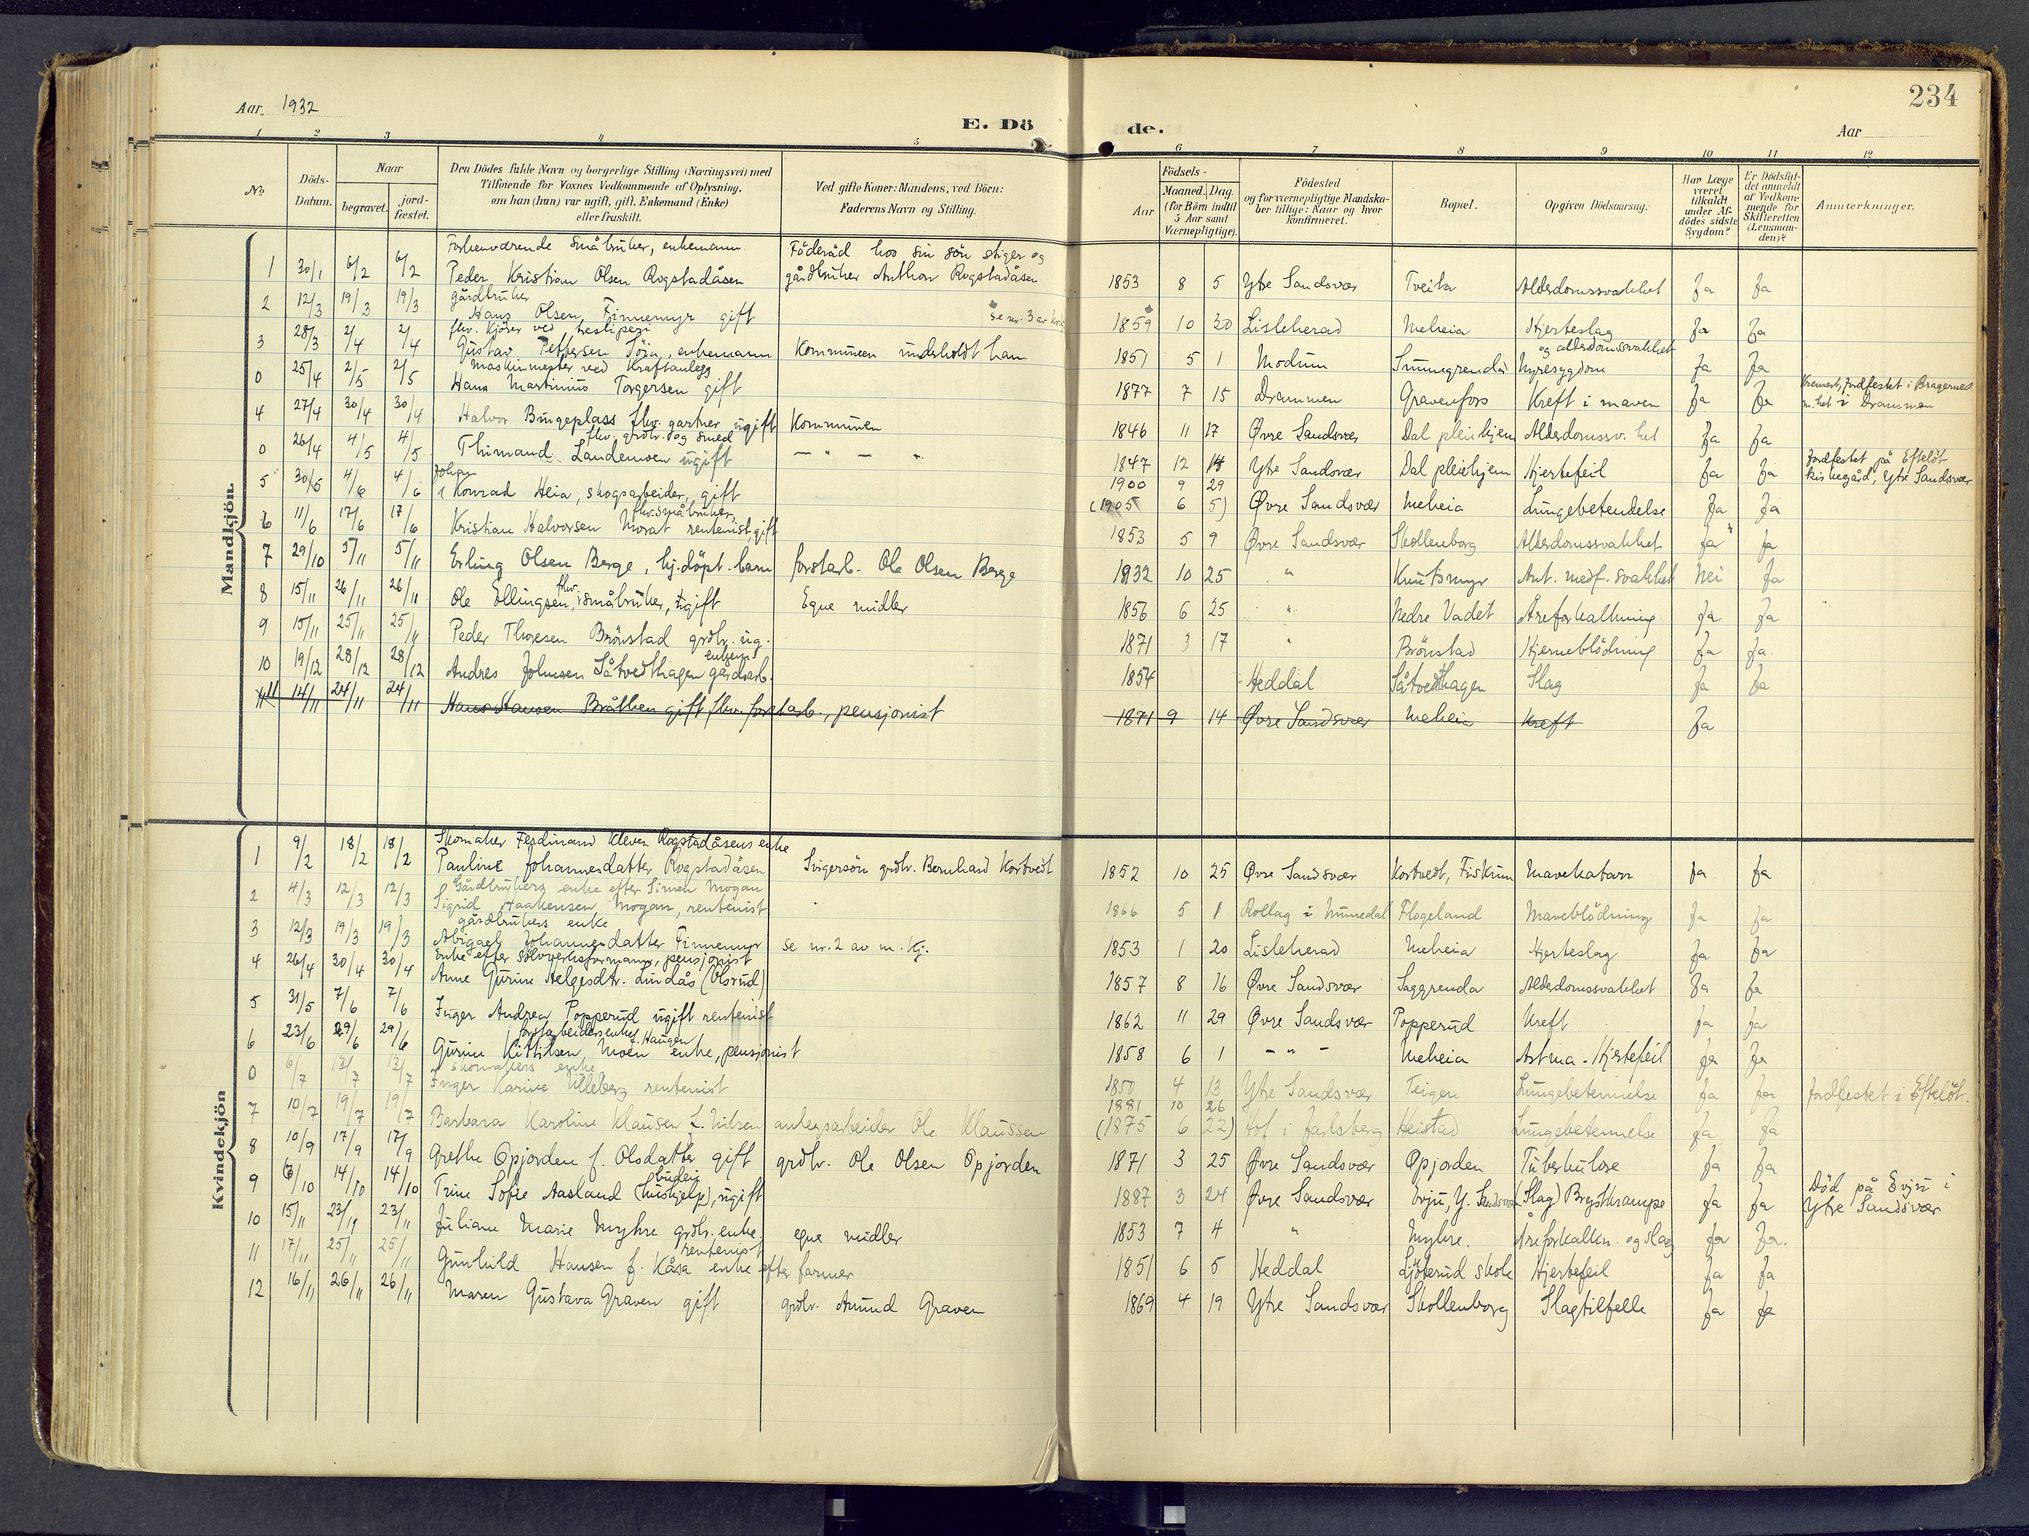 234
Aar 1932
E. Döde.
Aar
1 2 3 4 5 6 7 8 9 10 11 12
No.
Döds-Datum.
Naar
begravet.
jord-fæstet.
Den Dödes fulde Navn og borgerlige Stilling (Næringsvei) med
Tilföiende for Voxnes Vedkommende af Oplysning,
om han (hun) var ugift, gift, Enkemand (Enke)
eller fraskilt.
Ved gifte Koner: Mandens, ved Börn:
Faderens Navn og Stilling.
Födsels-
Aar
Maaned. Dag.
(for Börn indtil
5 Aar samt
Værnepligtige).
Födested
og for værnepligtige Mandska-
ber tillige: Naar og hvor
konfirmeret.
Bopæl.
Opgiven Dödsaarsag.
Har Læge
været
tilkaldt
under Af-
dödes sidste
Sygdom?
Er Dödsfal-
det anmeldt
af Vedkom-
mende for
Skifteretten
(Lensman-
den)?
Anmærkninger.
Mandkjön.
Forhenværende småbruker, enkemann Föderåd hos sin sön stiger og
1 30/1 6/2 6/2 Peder Kristian Olsen Rogstadåsen gårdbruker Anthon Rogstadåsen 1853 8 5 Ytre Sandsvær Tveita Alderdomssvakhet Ja Ja
gårdbruker
2 12/3 19/3 19/3 Hans Olsen Finnemyr gift se nr. 3 av kv.kj. 1859 10 30 Lisleherad Meheia Hjerteslag Ja Ja
fhv. kjörer ved og alderdomssvakhet
3 28/3 2/4 2/4 Gustav Pettersen enkemann Kommunen underholdt ham 1851 5 1 Modum Nyresygdom Ja Ja
Maskinmester ved Kraftanlegg Kremert, Jordfestet i Bragernes
0 25/4 2/5 2/5 Hans Martinius Torgersen gift 1877 7 15 Drammen Gravenfors Kreft i maven Ja Ja m.het i Drammen
4 27/4 30/4 30/4 Halvor Bingeplass fhv. gartner ugift Kommunen 1846 11 17 Øvre Sandsvær Dal pleiehjem Alderdomssv.het Ja Ja
fhv. grdbr. og smed Jordfestet på Efteløt
0 26/4 4/5 4/5 Landemoen ugift — " — " 1847 12 14 Ytre Sandsvær Dal pleiehjem Hjertefeil Ja Ja kirkegård, Ytre Sandsvær
Johan 1900 9 29
5 30/5 4/6 4/6 Konrad Heia, skogsarbeider, gift (1905 6 5) Øvre Sandsvær Meheia Lungebetendelse Ja Ja
fhv. småbruker,
6 11/6 17/6 17/6 Kristian Halvorsen Morat rentenist, gift 1853 5 9 Øvre Sandsvær Skollenborg Alderdomssvakhet Ja Ja
7 29/10 5/11 5/11 Erling Olsen Berge, hj.döpt. barn forstarb. Ole Olsen Berge 1932 10 25 " Knutsmyr Ant. medf. svakhet Nei Ja
8 15/11 26/11 26/11 Ole Ellingsen, fhv. småbruker, ugift Egne midler 1856 6 25 " Nedre Vadet Åreforkalkning Ja Ja
9 15/11 25/11 25/11 Peder Thoresen Brönstad grdbr. ug. 1871 3 17 " Brönstad Hjerneblödning Ja Ja.
enkem.
10 19/12 28/12 28/12 Andres Johnsen Såtvedthagen gårdsarb. 1854 Heddal Såtvedthagen Slag Ja Ja
11 14/11 24/11 24/11 Hans Hansen Bråthen gift, fhv. forstarb., pensjonist 1871 9 14 Øvre Sandsvær Meheia Kreft Ja
Kvindekjön
Skomaker Ferdinand Kleven Rogstadåsens enke
1 9/2 18/2 18/2 Pauline Johannesdatter Rogstadåsen Svigersön grdbr. Bernhard Kortvedt 1852 10 25 Øvre Sandsvær Kortvedt, Fiskum Mavekatarr Ja Ja
Gårdbrukers enke efter Simen Mogan
2 4/3 12/3 12/3 Sigrid Haakensen Mogan, rentenist 1866 5 1 Rollag i Numedal Flogeland Maveblödning Ja Ja
gårdbrukers enke
3 12/3 19/3 19/3 Abigael Johannesdatter Finnemyr se nr. 2 av m. kj. 1853 1 20 Lisleherad Meheia Hjerteslag Ja Ja
Enke efter sölvverksformann, pensjonist
4 26/4 30/4 30/4 Anne Gurine Helgesdtr. Lindås (Olsrud) 1857 8 16 Øvre Sandsvær Saggrenda Alderdomssvakhet Ja Ja
5 31/5 7/6 7/6 Inger Andrea Popperud ugift rentenist 1862 11 29 Øvre Sandsvær Popperud Kreft Ja Ja
forstarbeidersenke f. Haugen
6 23/6 29/6 29/6 Gurine Kittilsen, Moen enke, pensjonist 1858 6 1 — " — Meheia Astma - Hjertefeil Ja Ja
skomakers enke
0 6/7 13/7 13/7 Inger Karine Ulleberg rentenist 1850 4 13 Ytre Sandsvær Teigen Lungebetennelse Ja Ja Jordfestet i Efteløt.
1881 10 26
7 10/7 19/7 19/7 Barbara Karoline Klausen f. Nilsen anlegsarbeider Ole Klaussen (1875 6 22) Hof i Jarlsberg Heistad Lungebetennelse Ja Ja
8 10/9 17/9 17/9 Grethe Opjorden f. Olsdatter gift grdbr. Ole Olsen Opjorden 1871 3 25 Øvre Sandsvær Opjorden Tuberkulose Ja Ja
budeie Död på Evju i
9 6/10 14/10 14/10 Trine Sofie Aasland (hushjelp), ugift 1887 3 24 Øvre Sandsvær Evju, Y. Sandsvær (Slag) Brystkrampe Ja Ja Ytre Sandsvær
10 15/11 23/11 23/11 Juliane Marie Myhre grdbr. enke. egne midler 1853 7 4 " Myhre. Åreforkalkn. og slag Ja Ja.
rentenist
11 17/11 25/11 25/11 Gunhild Hansen f. Kåsa enke efter farmer 1851 6 5 Heddal Ljöterud skole Hjertefeil Ja Ja
12 16/11 26/11 26/11 Maren Gustava Graven gift grdbr. Amund Graven 1869 4 19 Ytre Sandsvær Skollenborg Slagtilfelle Ja Ja